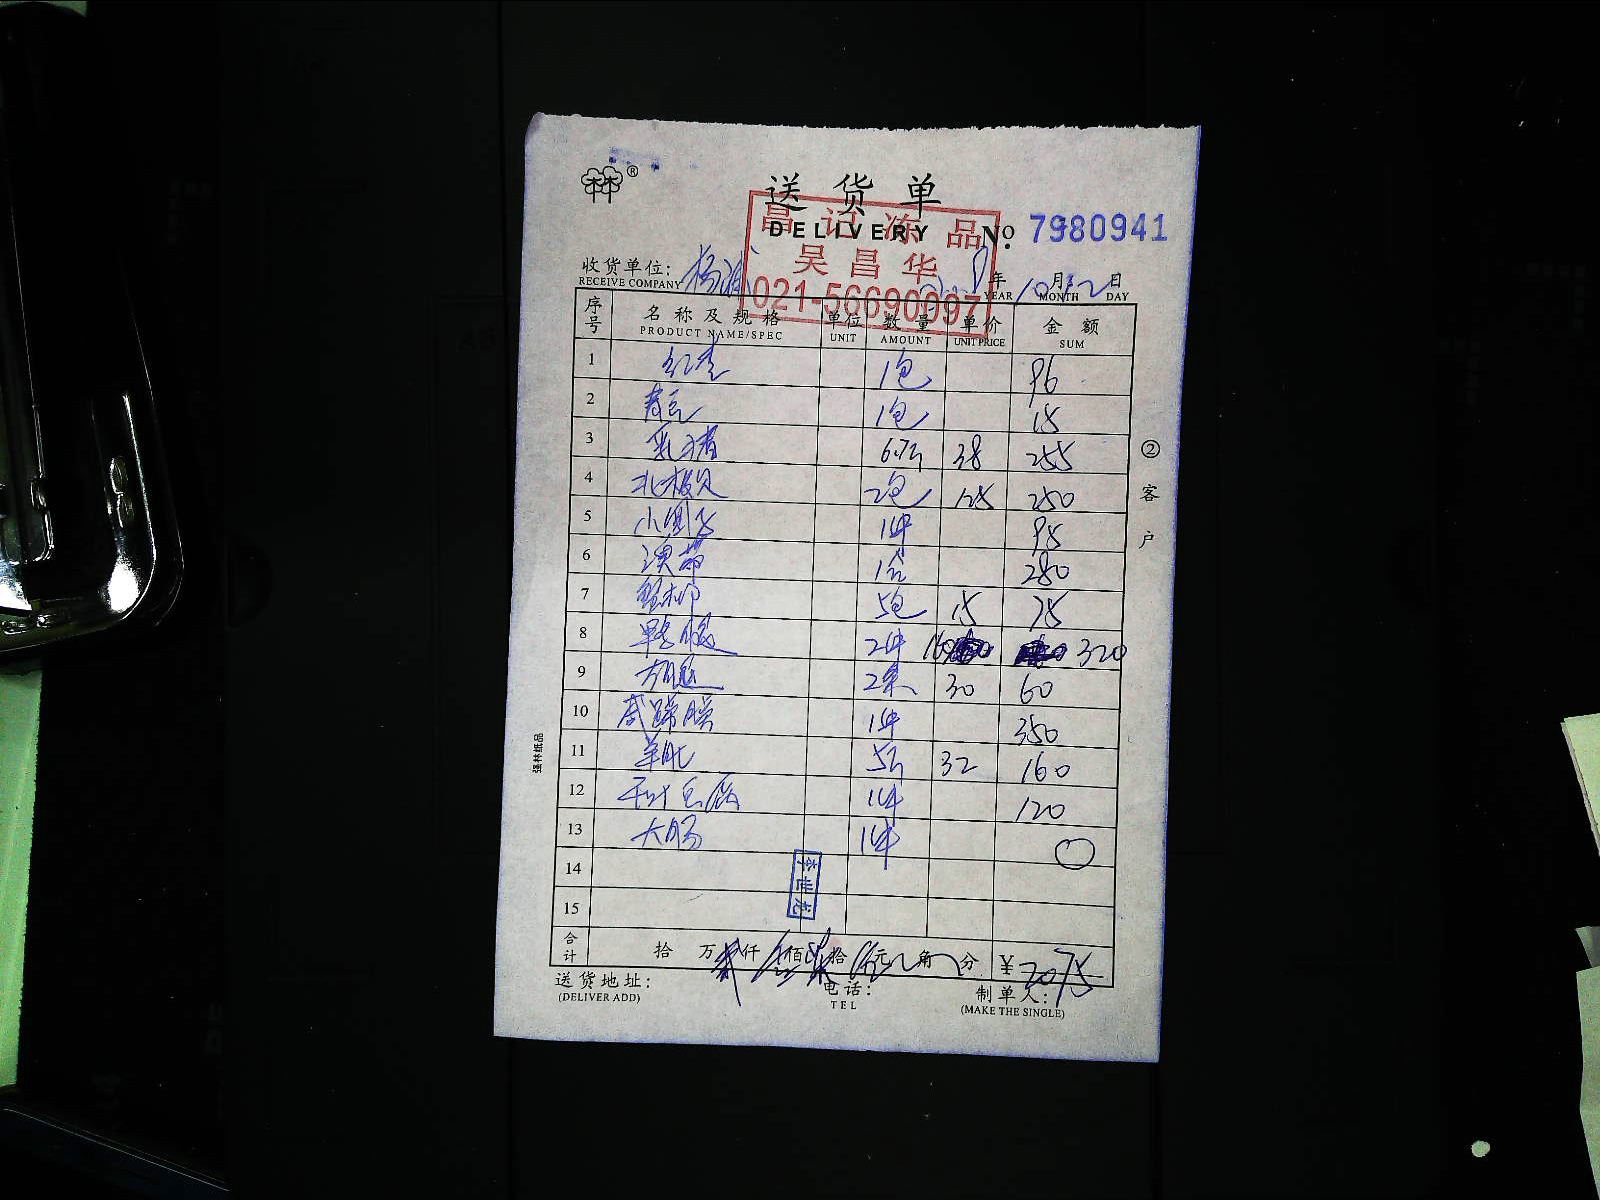 林®
送货单
DELIVERY
昌记冻品
吴昌华
021-56690097
No. 7980941
收货单位: 杨浦
RECEIVE COMPANY
8年 10月12日
YEAR MONTH DAY
序号 名称及规格 单位 数量 单价 金额
PRODUCT NAME/SPEC UNIT AMOUNT UNIT PRICE SUM
1 红枣 1包 96
2 1包 15
3 乳猪 6.7斤 38 255
4 北极贝 2包 125 250
5 小圆子 1件 95
6 澳带 1盒 280
7 5包 15 75
8 2件 160 320
9 方腿 2条 30 60
10 1件 350
11 羊肚 5斤 32 160
12 千叶豆腐 1件 120
13 大肠 1件 0
14
15
合计 拾 万 贰仟 佰 柒拾 伍元 角 分 ¥2075
送货地址: 电话: 制单人:
(DELIVER ADD) TEL (MAKE THE SINGLE)
②客户
强林纸品
李世龙